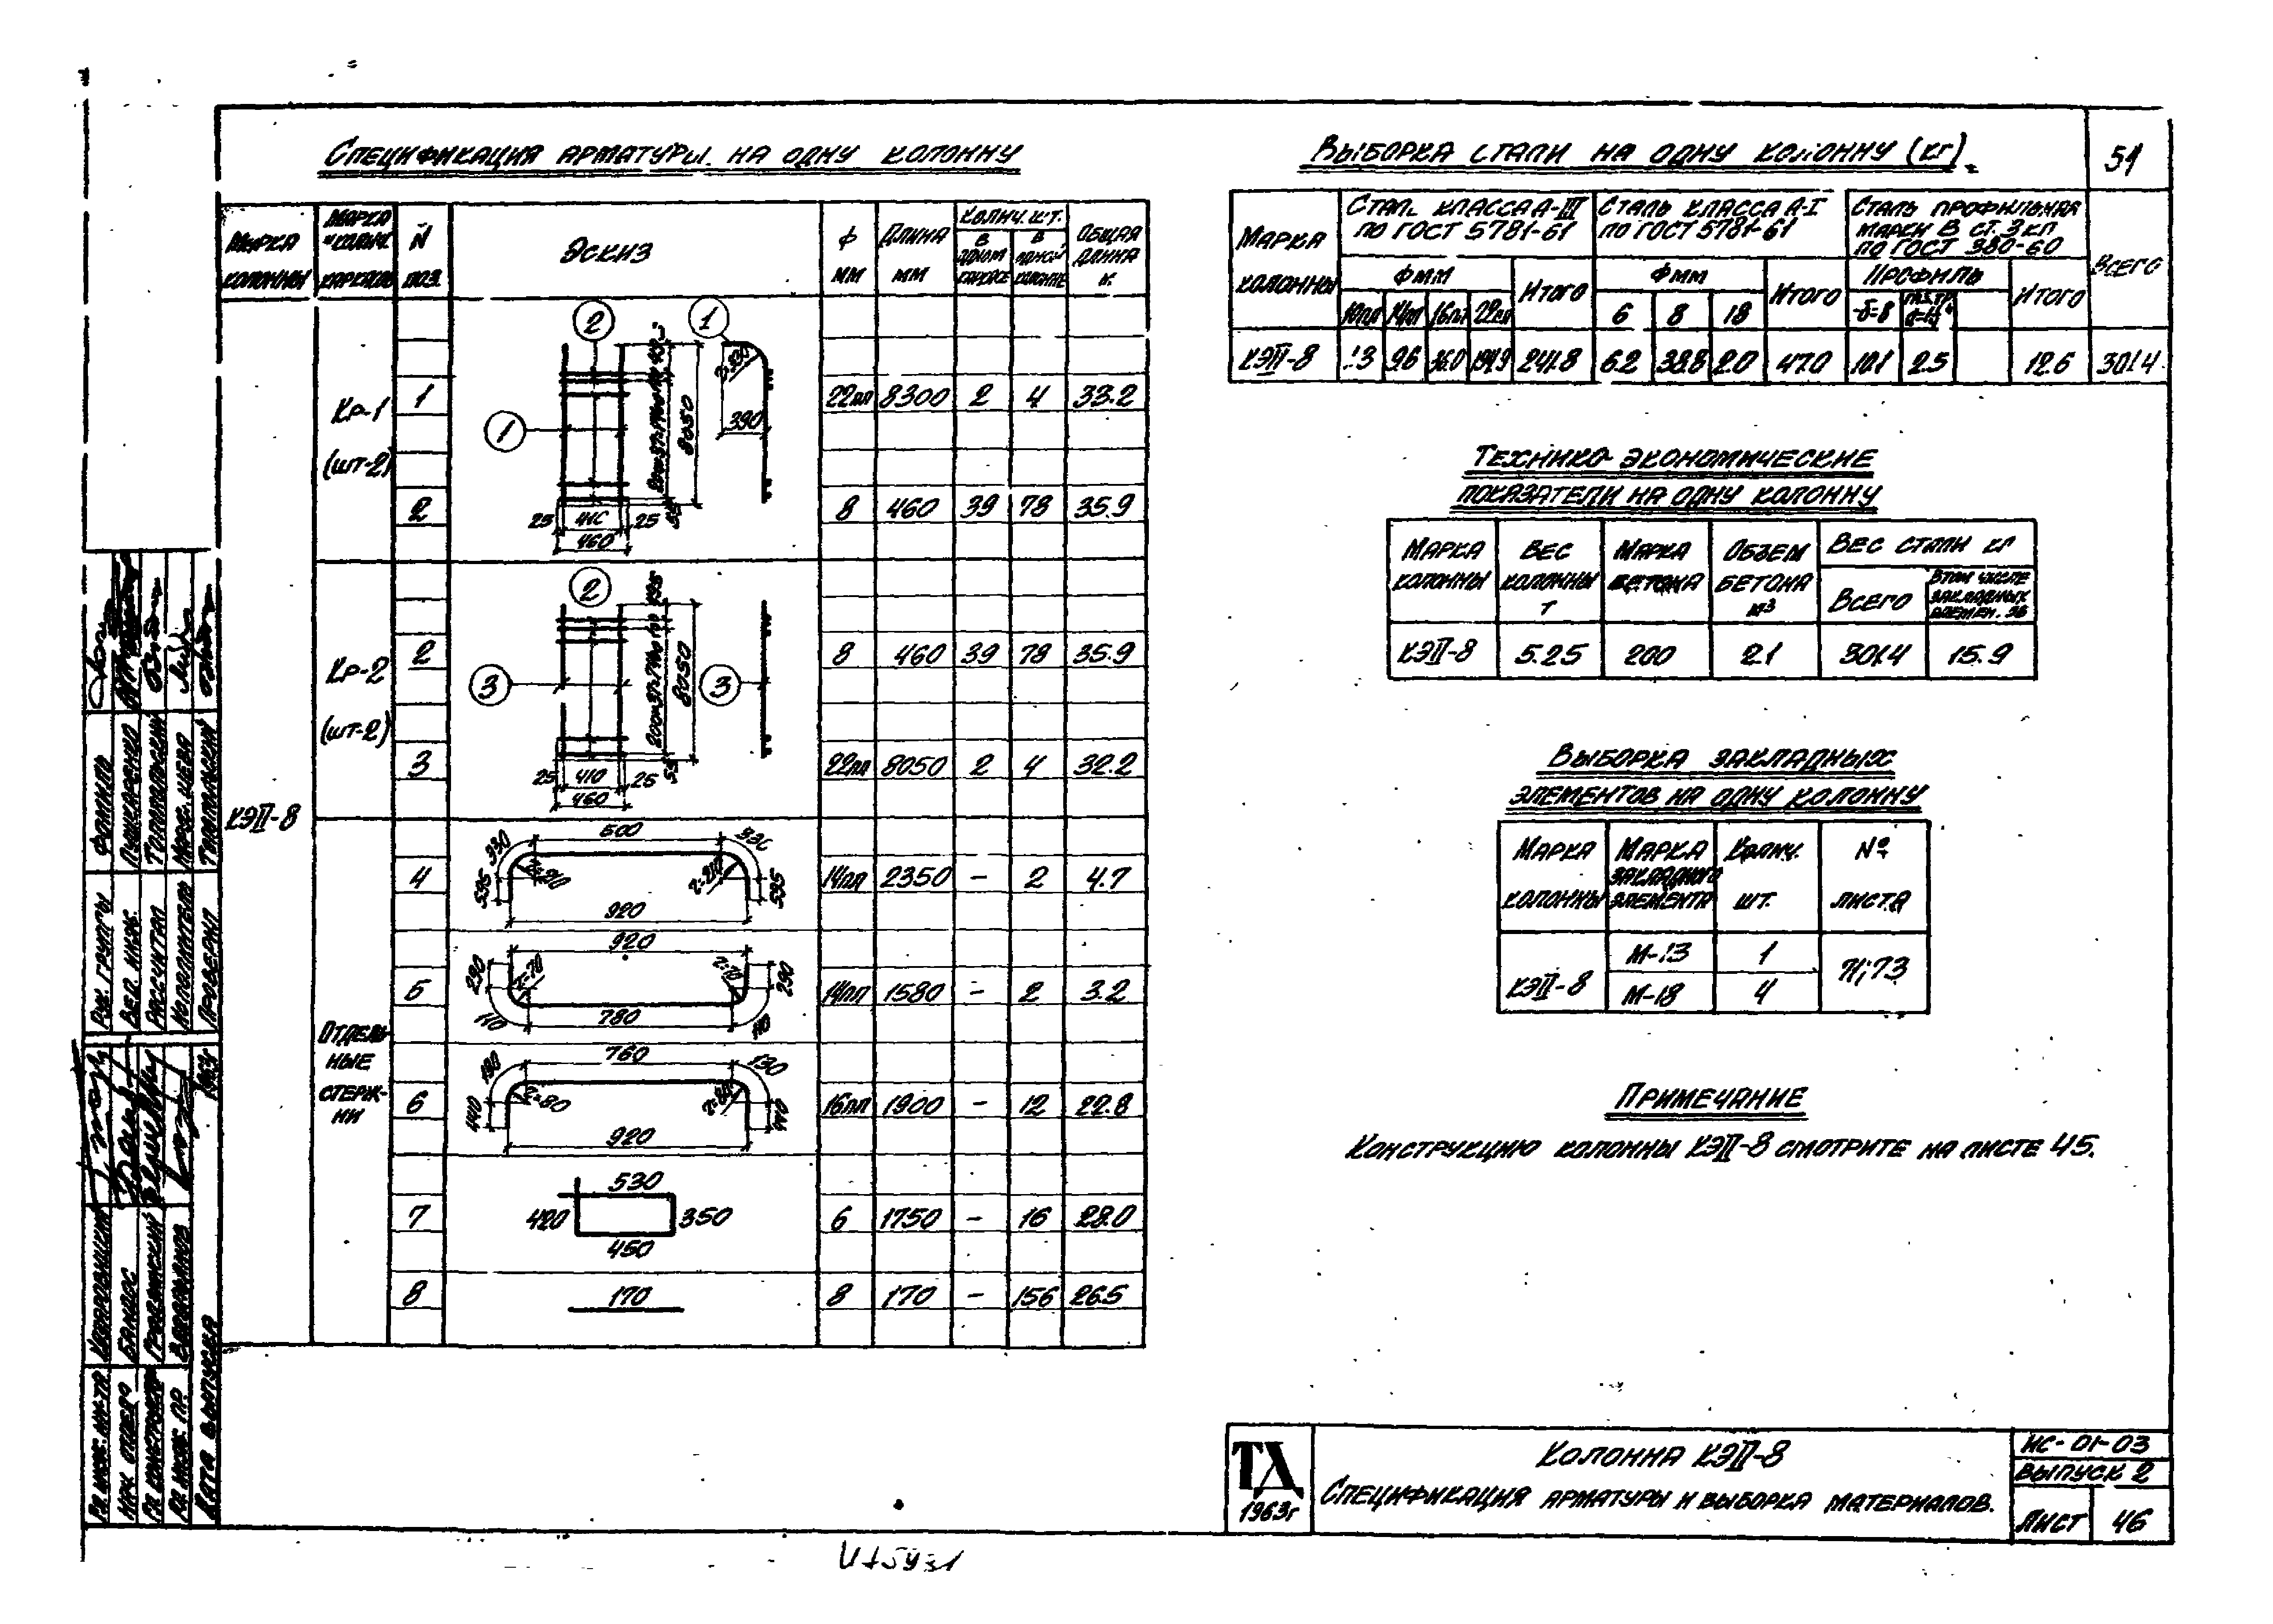 51
Спецификация арматуры на одну колонну
Марка колонны
Марка и колич. каркасов
N поз.
Эскиз
ф мм
Длина мм
Колич. шт.
в одном каркасе
в одной колонне
Общая длина м.
КЭII-8
Кр-1 (шт-2)
1 22пл 8300 2 4 33.2
2 8 460 39 78 35.9
2 1
1
8050
390
25 410 25 55
460
Кр-2 (шт-2)
2 8 460 39 78 35.9
3 22пл 8050 2 4 32.2
2
3 3
8050
25 410 25 55
460
Отдель-
ные
стерж-
ни
4 14пл 2350 – 2 4.7
330 600 330
535 r=210 r=210 535
920
5 14пл 1580 – 2 3.2
920
290 r=70 r=70 290
110 780 110
6 16пл 1900 – 12 22.8
760 130
440 r=80 r=80 440
920
7 6 1750 – 16 28.0
530
420 350
450
8 170 8 170 – 156 26.5
Выборка стали на одну колонну (кг)
Марка колонны
Сталь класса А-III по ГОСТ 5781-61
Сталь класса А-I по ГОСТ 5781-61
Сталь профильная марки В ст. 3 кп по ГОСТ 380-60
Всего
ф мм Итого ф мм Итого Профиль Итого
10пл 14пл 16пл 22пл 6 8 18 -δ=8
КЭII-8 1.3 9.6 36.0 194.9 241.8 6.2 38.8 2.0 47.0 10.1 2.5 12.6 301.4
Технико-экономические
показатели на одну колонну
Марка колонны
Вес колонны т
Марка бетона
Объем бетона м3
Вес стали кг
Всего
В том числе закладных элемен. зв
КЭII-8 5.25 200 2.1 301.4 15.9
Выборка закладных
элементов на одну колонну
Марка колонны
Марка закладного элемента
Колич. шт.
№ листа
КЭII-8
М-13 1
М-18 4
71; 73
Примечание
Конструкцию колонны КЭII-8 смотрите на листе 45.
ТД
1963г
Колонна КЭII-8
Спецификация арматуры и выборка материалов.
ИС-01-03
Выпуск 2
Лист 46
Рук. группы
Вед. инж. Пушкаренко
Рассчитал
Исполнитель
Проверил
Нач. отдела
Гл. инж. пр.
Дата выпуска 1963г